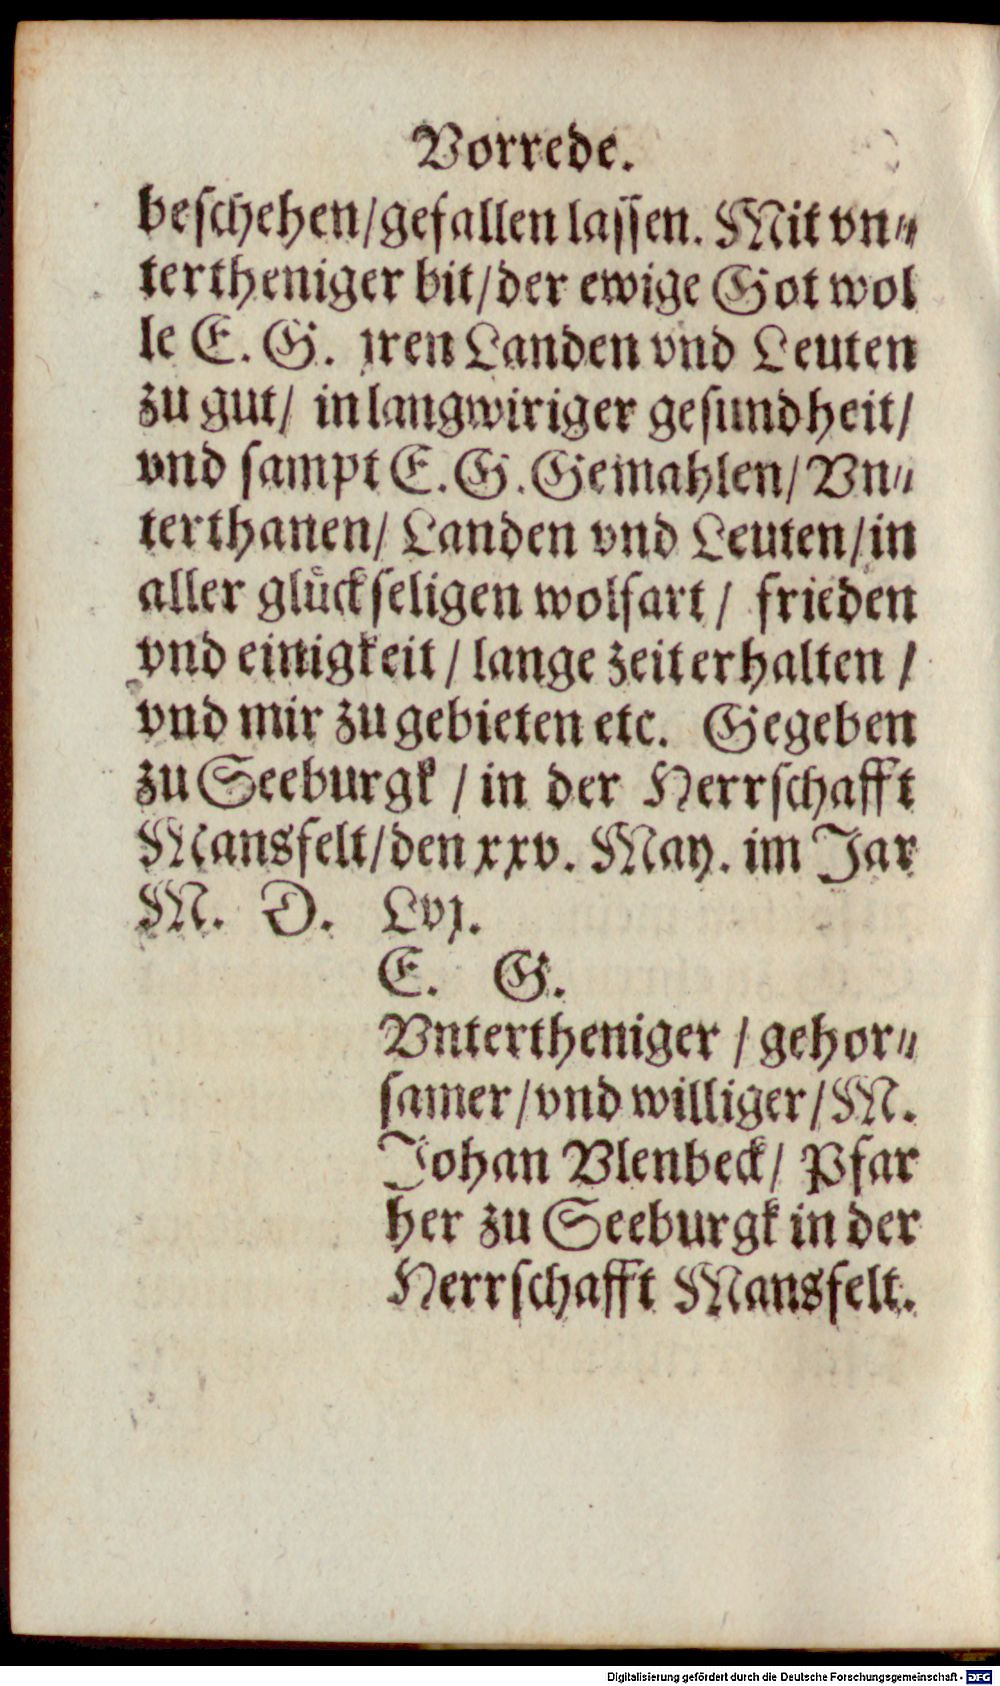 Vorrede.
beschehen/gefallen lassen. Mit vn⸗
tertheniger bit/der ewige Got wol
le E. G. jren Landen vnd Leuten
zu gut/ in langwiriger gesundheit/
vnd sampt E. G. Gemahlen/ Vn⸗
terthanen/ Landen vnd Leuten/in
aller glückseligen wolfart / frieden
vnd einigkeit / lange zeit erhalten /
vnd mir zu gebieten etc. Gegeben
zu Seeburgk / in der Herrschafft
Mansfelt/den xxv. May. im Jar
M. D. Lvj.
E. G.
Vntertheniger / gehor⸗
samer/vnd williger/M.
Johan Vlenbeck/ Pfar
her zu Seeburgk in der
Herrschafft Mansfelt.
Digitalisierung gefördert durch die Deutsche Forschungsgemeinschaft - DFG